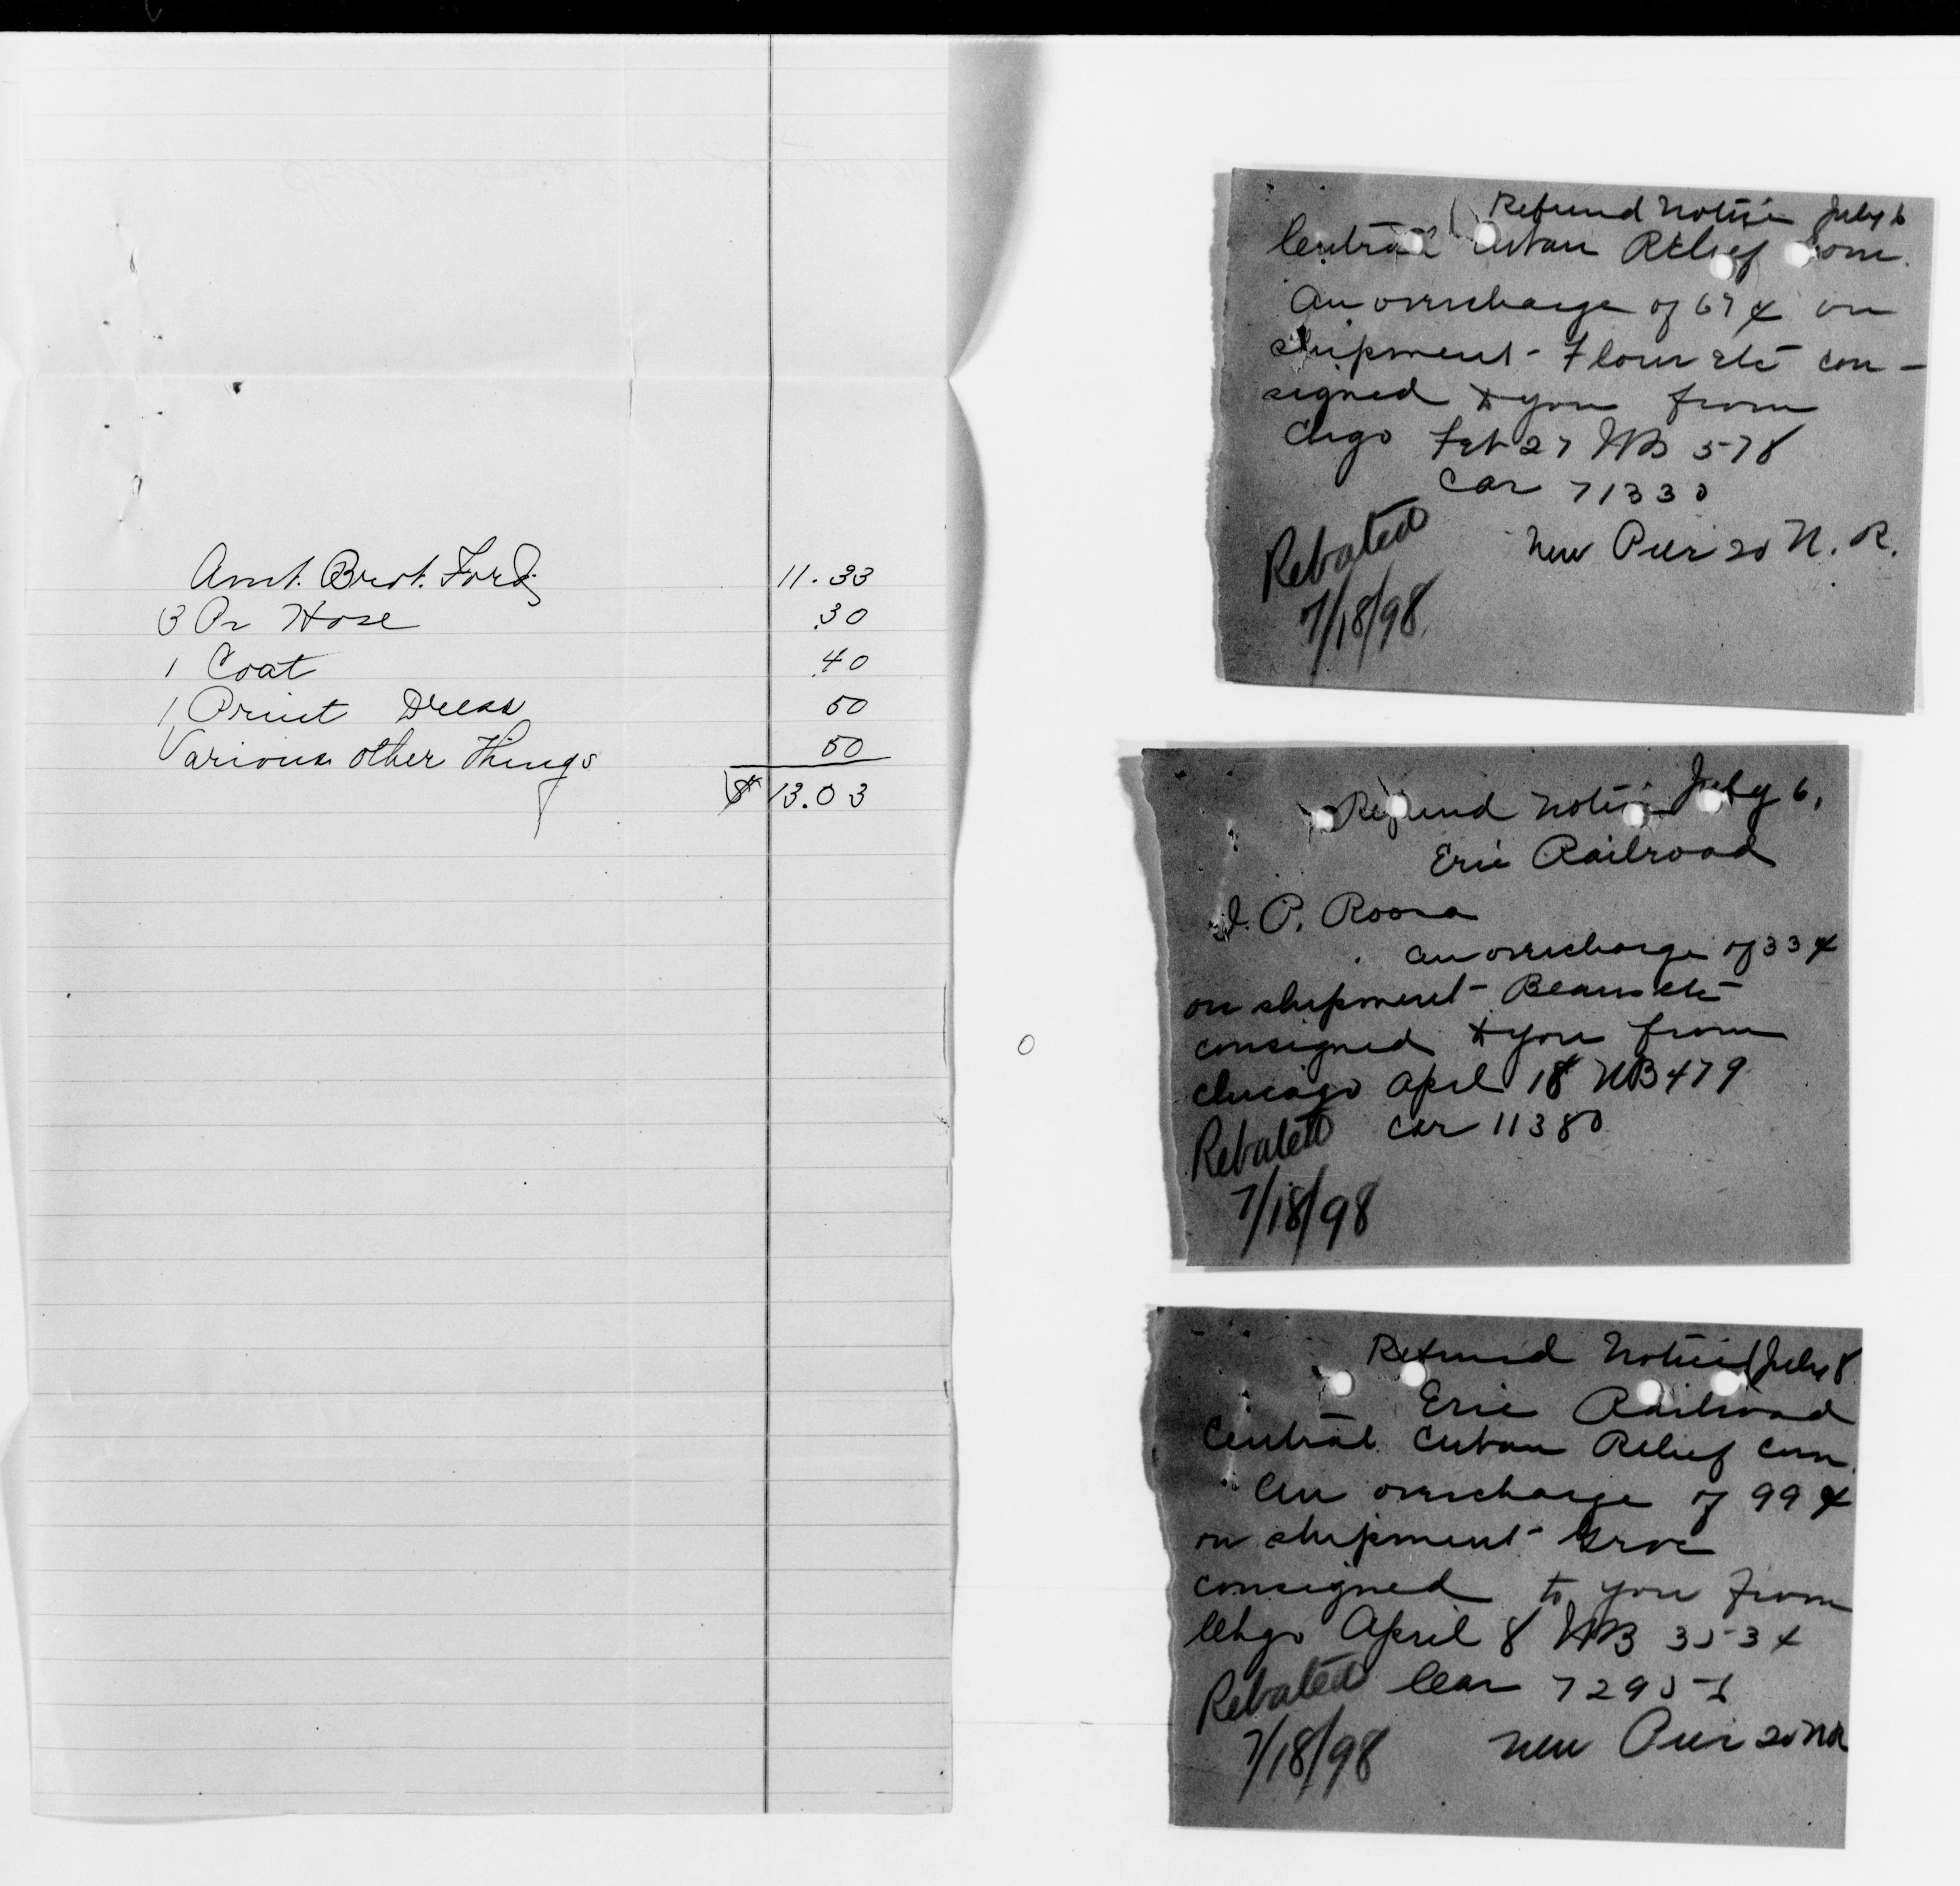 Amt. Brot. Ford. 11.33
3 Pr Hose .30
1 Coat .40
1 Print Dress 50
Various other Things 50
$ 13.03
Refund Notice July 6
Central Cuban Relief Com.
An overcharge of 67¢ on
shipment - Flour etc con-
signed to you from
Chgo Feb 27 WB 578
Car 71330
New Pier 20 N. R.
Rebated
7/18/98
Refund Notice July 6,
Erie Railroad
P. Roosa
an overcharge of 33¢
on shipment - Beans etc
consigned to you from
Chicago April 18 WB 479
Car 11380
Rebated
7/18/98
Refund Notice July 8
Erie Railroad
Central Cuban Relief Com.
An overcharge of 99¢
on shipment - Groc
consigned to you from
Chgo April 8 WB
Car
New Pier 20 NR
Rebated
7/18/98